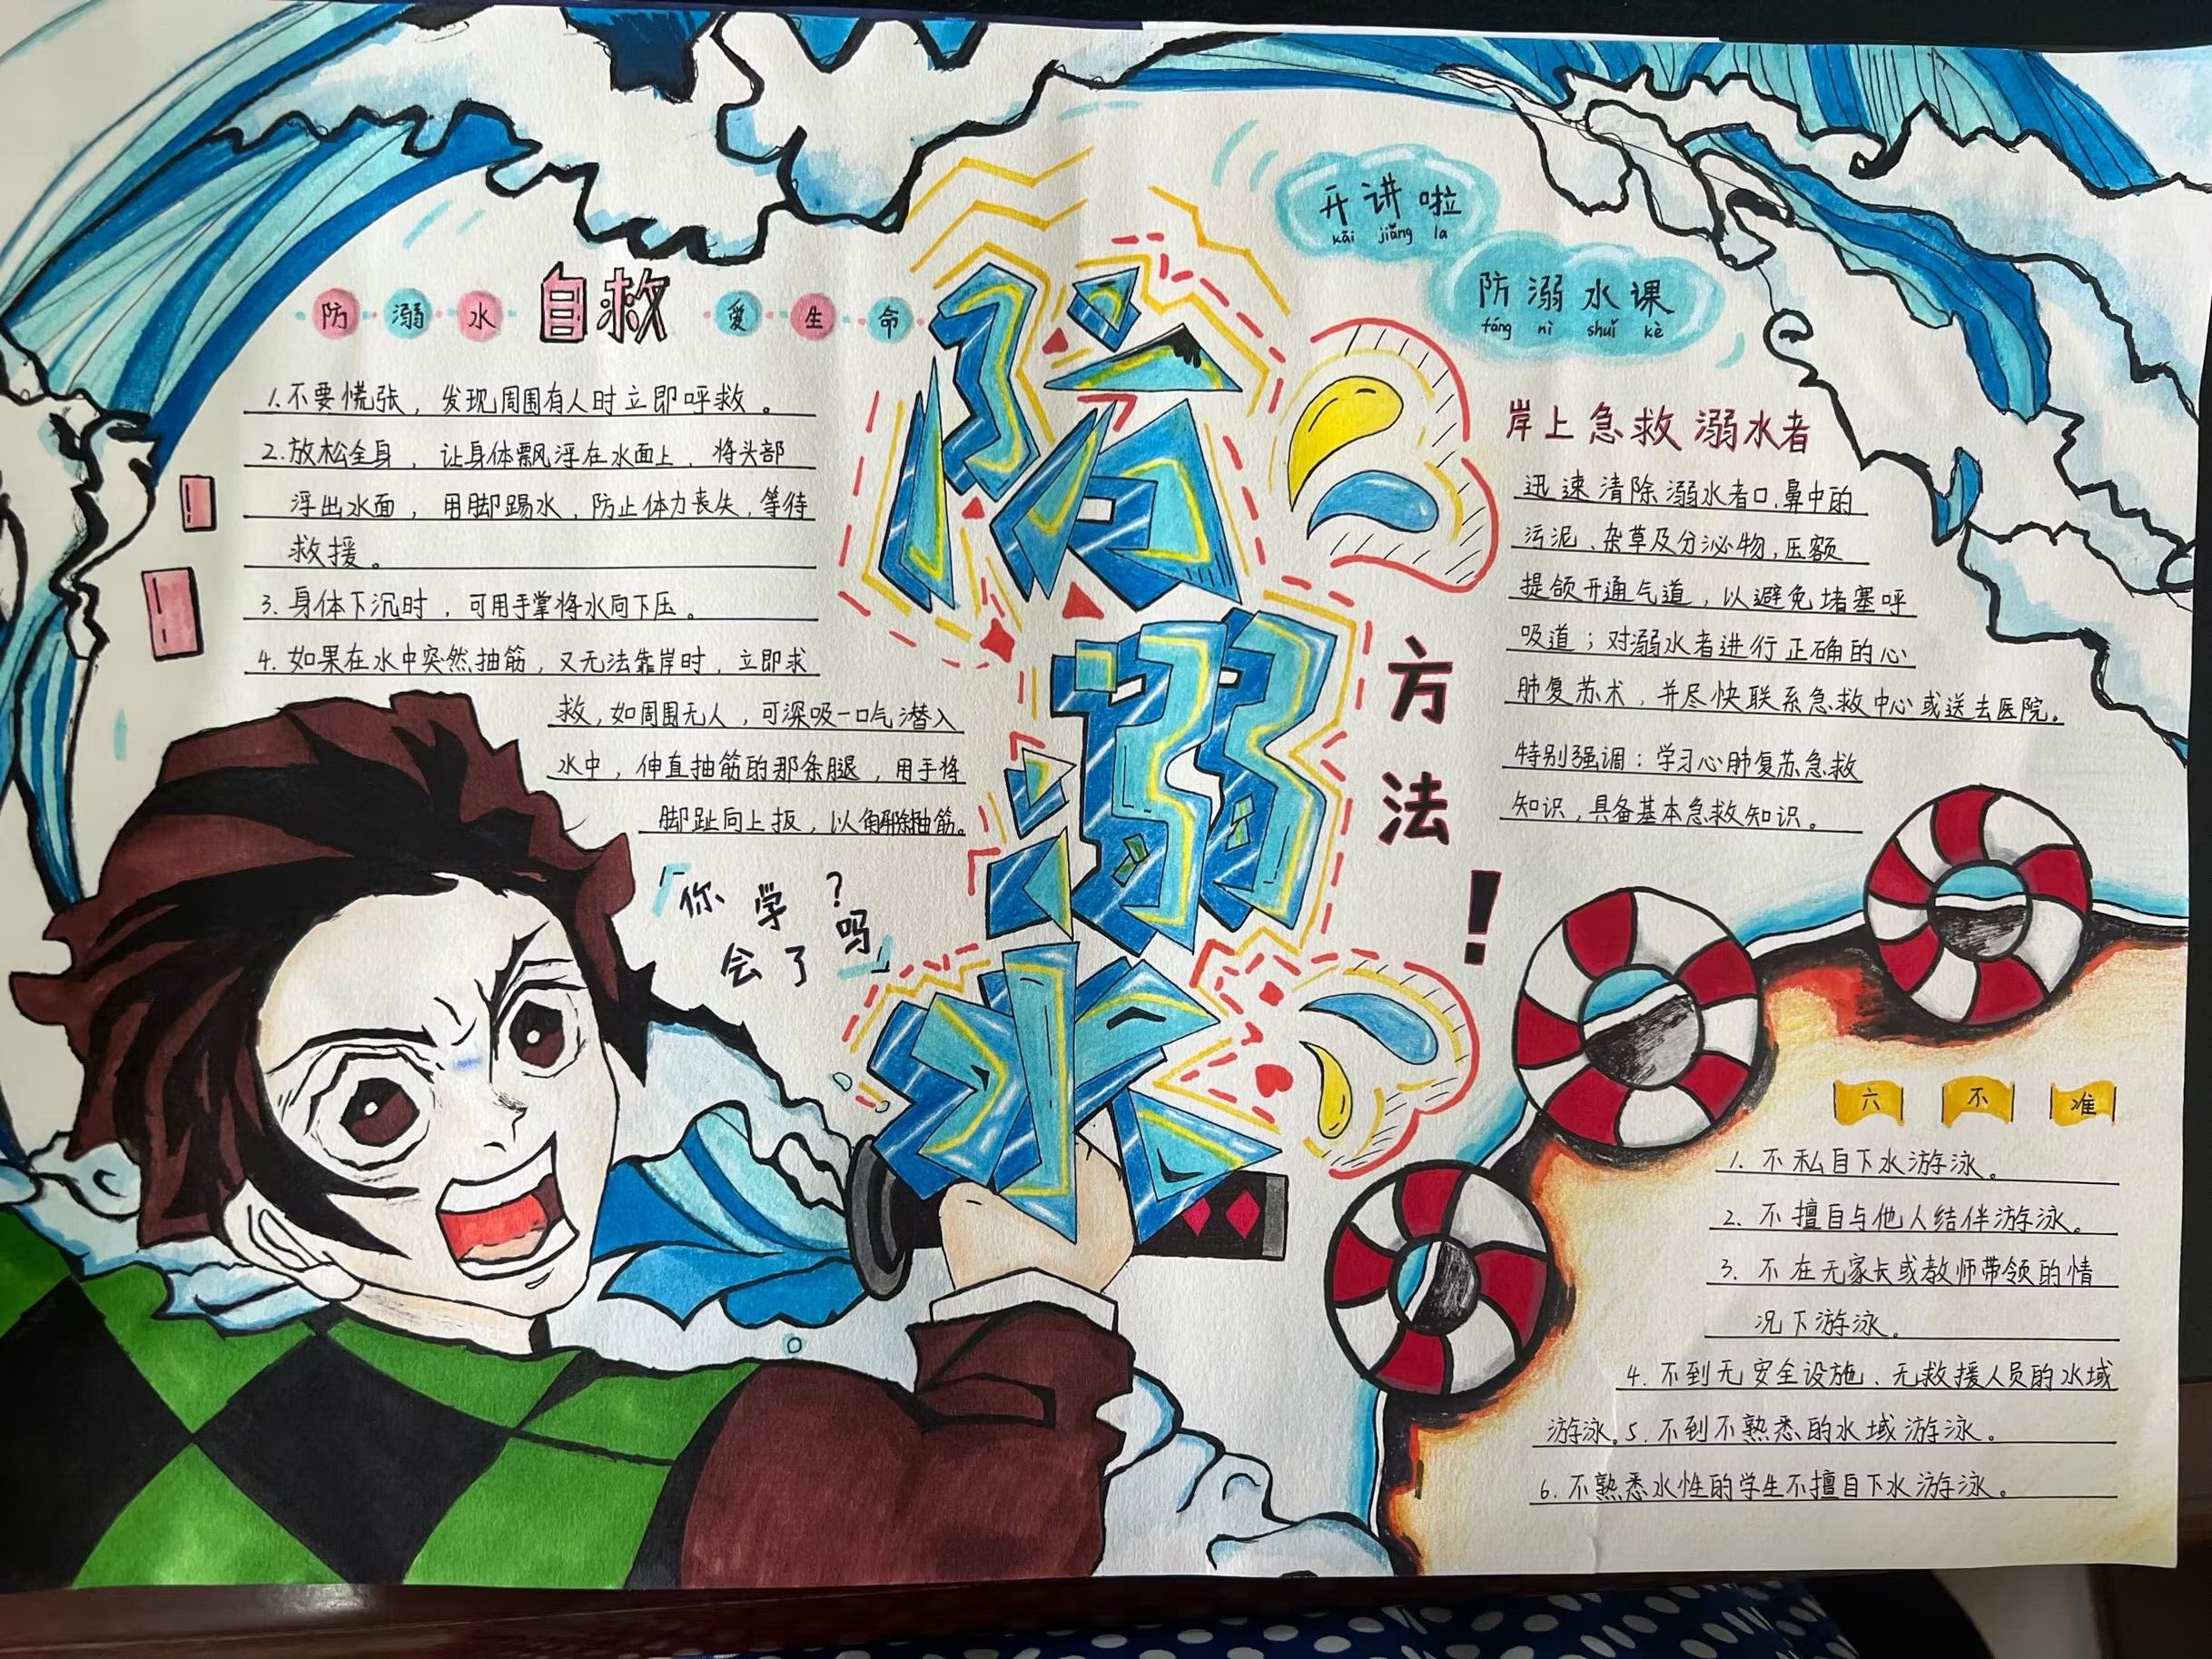 防溺水 自救 爱生命
1.不要慌张，发现周围有人时立即呼救。
2.放松全身，让身体飘浮在水面上，将头部
浮出水面，用脚踢水，防止体力丧失，等待
救援。
3.身体下沉时，可用手掌将水向下压。
4.如果在水中突然抽筋，又无法靠岸时，立即求
救，如周围无人，可深吸一口气潜入
水中，伸直抽筋的那条腿，用手将
脚趾向上扳，以解除抽筋。
「你学?
会了吗」
防
溺
水
方
法
！
开讲啦
kāi jiǎng la
防溺水课
fáng nì shuǐ kè
岸上急救溺水者
迅速清除溺水者口.鼻中的
污泥、杂草及分泌物，压额
提颌开通气道，以避免堵塞呼
吸道；对溺水者进行正确的心
肺复苏术，并尽快联系急救中心或送去医院。
特别强调：学习心肺复苏急救
知识，具备基本急救知识。
六不准
1. 不私自下水游泳。
2. 不擅自与他人结伴游泳。
3. 不在无家长或教师带领的情
况下游泳。
4. 不到无安全设施、无救援人员的水域
游泳。5. 不到不熟悉的水域游泳。
6. 不熟悉水性的学生不擅自下水游泳。